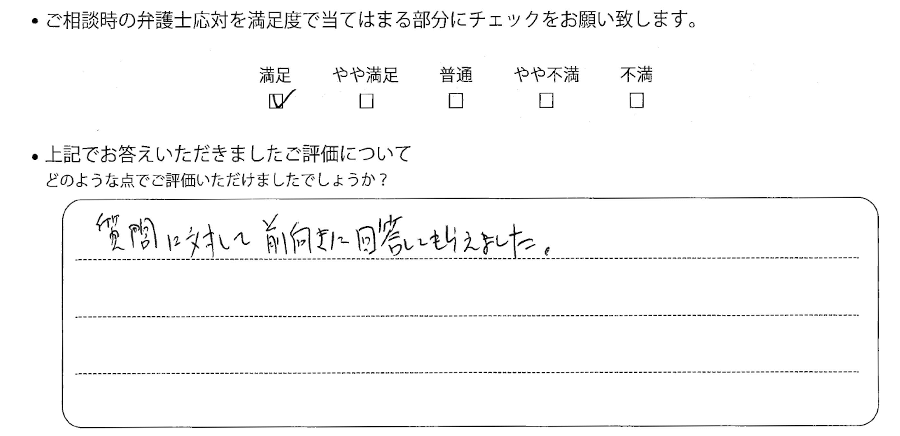 ・ご相談時の弁護士応対を満足度で当てはまる部分にチェックをお願い致します。
満足 やや満足 普通 やや不満 不満
☑ ☐ ☐ ☐ ☐
・上記でお答えいただきましたご評価について
どのような点でご評価いただけましたでしょうか？
質問に対して前向きに回答してもらえました。